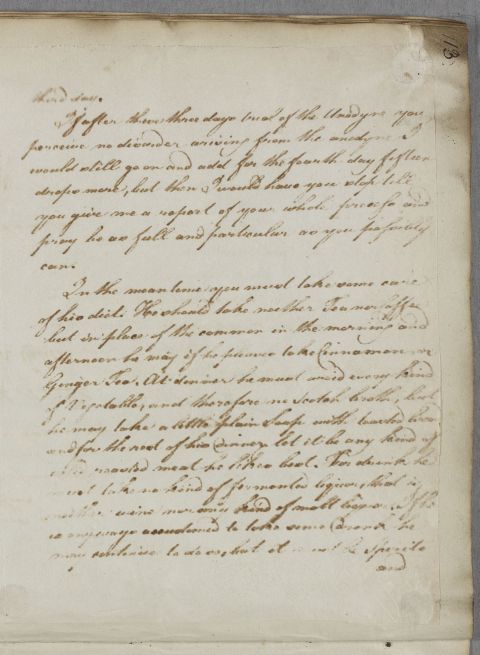 113
third day.
If after these three days trial of the Anodyne you
perceive no disorder arising from the anodyne I
would still go on and add for the fourth day fifteen
drops more, but then I would have you stop till
you give me a report of your whole process and
pray be as full and particular as you possibly
can.
In the mean time you must take some care
of his diet. He should take neither Tea nor Coffee
but in place of the common in the morning and
afternoon he may if he pleases take Cinnamon or
Ginger Tea. At dinner he must avoid every kind
of Vegetable, and therefore no Scotch broth, but
he may take a little plain Soup with toasted bread
and for the rest of his dinner let it be any kind of
roasted meat he likes best. For drink he
must take no kind of fermented liquor, that is
neither wine nor any kind of malt liquor. If he
is anyways accustomed to take some he
may continue to do so, but it must be Spirits
and